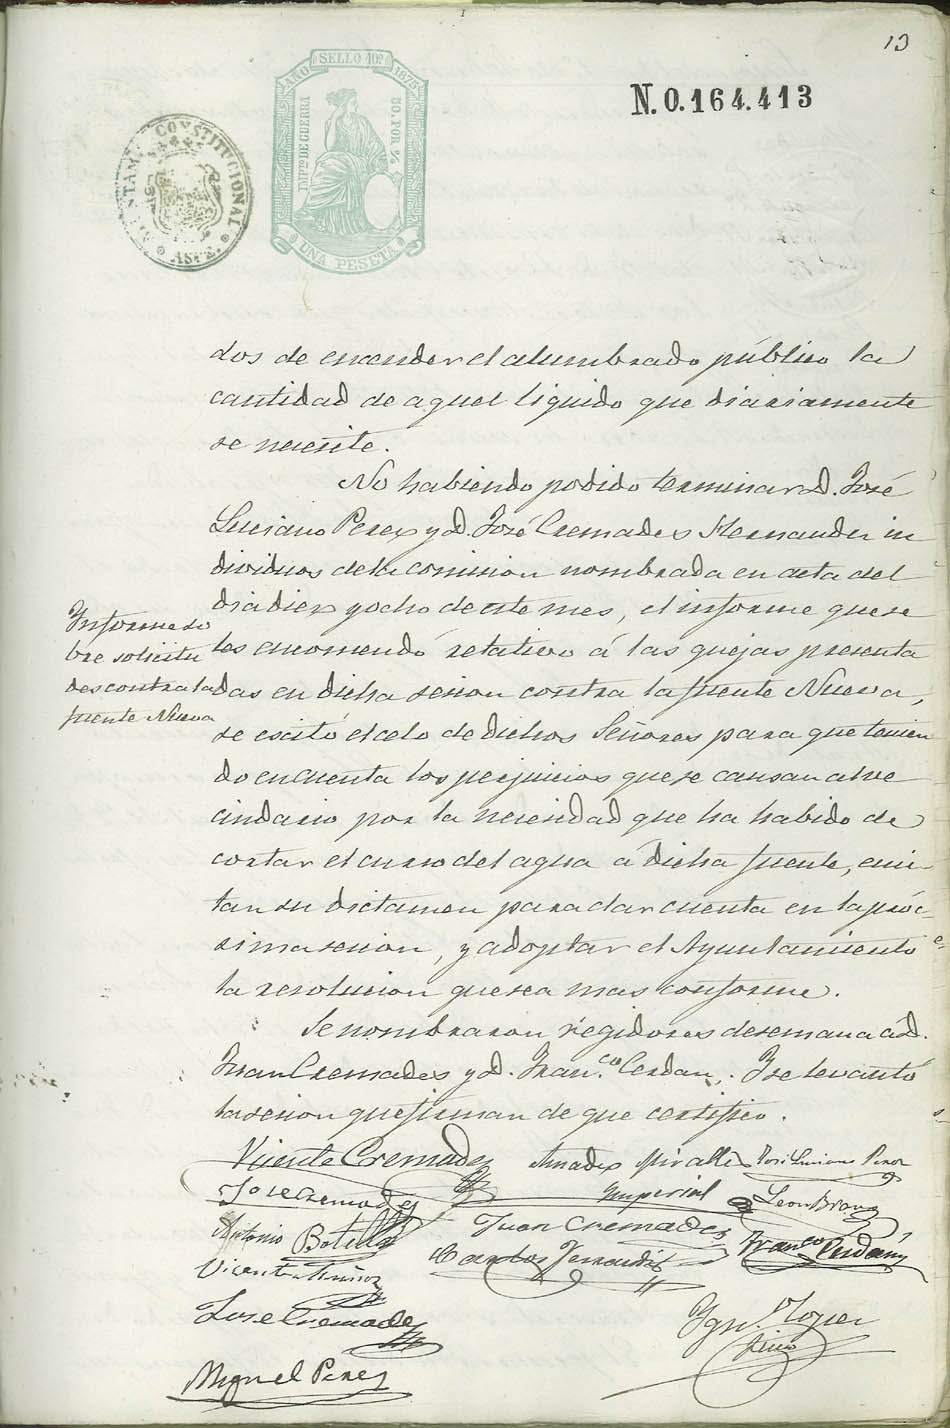 13
AÑO SELLO 10º 1875
IMPTO DE GUERRA
50. POR %
UNA PESETA
N. 0.164.413
AYUNTAMTO CONSTITUCIONAL
ASPE.
dos de encender el alumbrado público la
cantidad de aquel liquido que diariamente
se necesite.
No habiendo podido terminar D. José
Luciano Perez y D. José Cremades Hernandez in
dividuos de la comision nombrada en acta del
dia diez y ocho de este mes, el informe que se
Informe so
bre solicitu
des contra la
fuente Nueva
les encomendó relativo á las quejas presenta
das en dicha sesion contra la fuente Nueva,
se escitó el celo de dichos Señores para que tenien
do en cuenta los perjuicios que se causan al ve
cindario por la necesidad que ha habido de
cortar el curso del agua á dicha fuente, emi
tan su dictamen para dar cuenta en la próc-
sima sesion, y adoptar el Ayuntamiento
la resolucion que sea mas conforme.
Se nombraron regidores de semana á D.
Juan Cremades y D. Fran.co Cerdan. Y se levantó
la sesion que firman de que certifico.
Vicente Cremades
Amades Miralles
José Luciano Perez
Jose Cremades
Imperial
Leon Bravo
Antonio Botella
Juan Cremades
Franco Cerdán
Vicente Muñoz
Carlos Fernandis
Jose Cremades
Miguel Perez
Srio